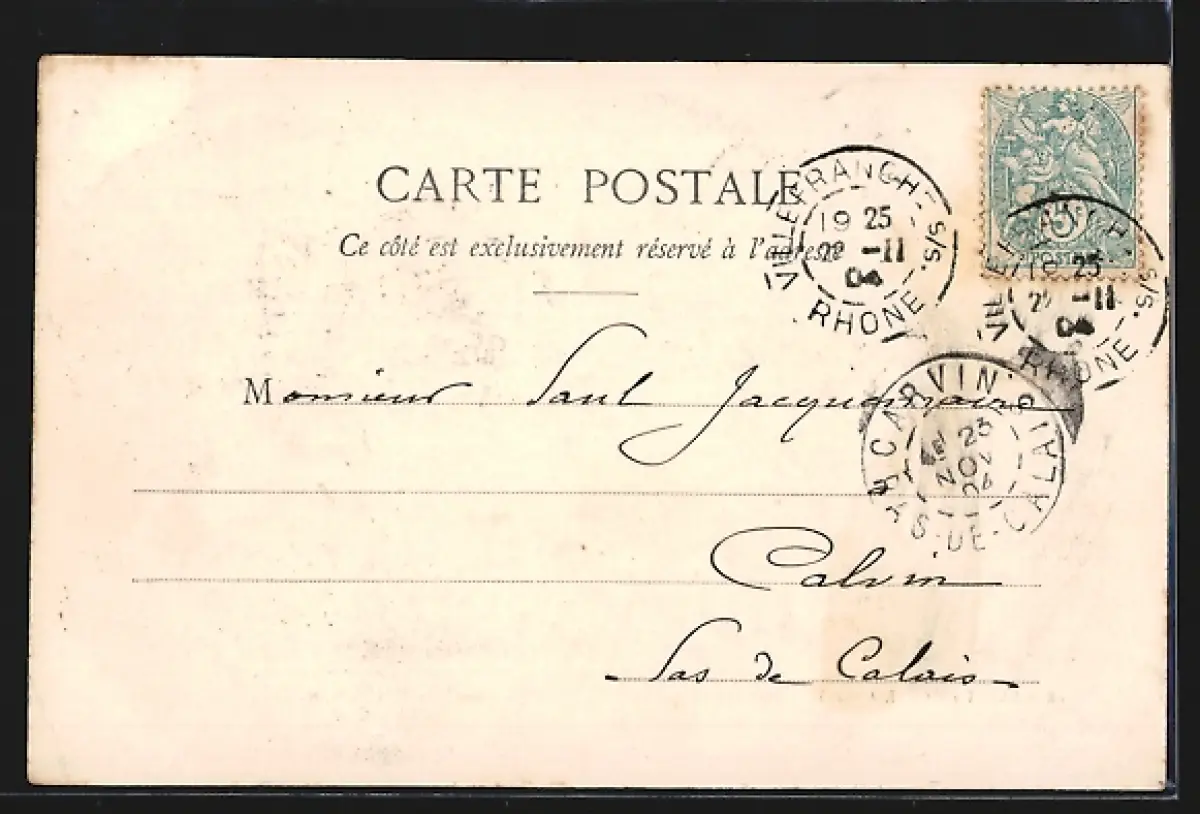 CARTE POSTALE
Ce côté est exclusivement réservé à l'adresse
VILLEFRANCHE S/S.
19 25
22 -11
04
RHONE
VILLEFRANCHE S/S.
19 25
22 -11
04
RHONE
5c
POSTES
CARVIN
23
NOV
04
PAS-DE-CALAIS
Monsieur Paul
Calvin
Pas de Calais